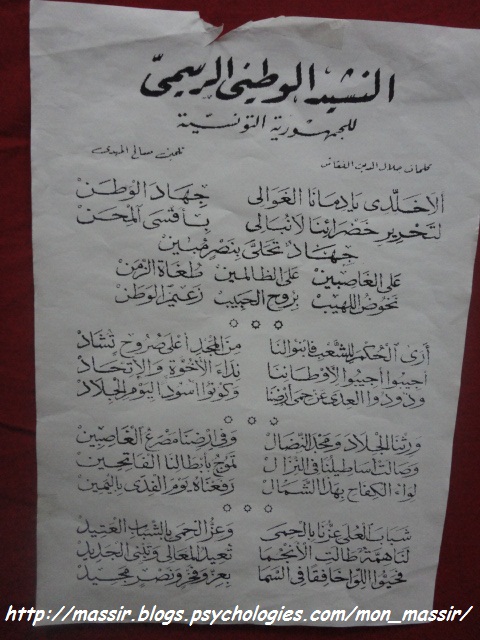 النشيد الوطني الرسمي
للجمهورية التونسية
كلمات جلال الدين النقاش تلحين صالح المهدي
ألا خلّدي يا دمانا الغوالي جهاد الوطن
لتحرير خضرائنا لا نبالي بأقسى المحن
جهاد تحلى بنصر مبين
على الغاصبين على الظالمين طغاة الزمن
نخوض اللهيب بروح الحبيب زعيم الوطن
أرى الحكم للشعب فابنوا لنا من المجد أعلى صروح تشاد
أجيبوا أجيبوا لأوطاننا نداء الأخوة والإتحاد
وذودوا العدى عن حمى أرضنا وكونوا أسودا ليوم الجلاد
ورثنا الجلاد ومجد النضال وفي أرضنا مصرع الغاصبين
وصالت أساطيلنا في النزال تموج بأبطالنا الفاتحين
لواء الكفاح بهذا الشمال رفعناه يوم الفدى باليمين
شباب العلى عزنا بالحمى وعز الحمى بالشباب العتيد
لنا همة طالت الأنجما تعيد المعالي وتبني الجديد
فحيوا اللوا خافقا في السما بعز وفخر ونصر مجيد
http://massir.blogs.psychologies.com/mon_massir/